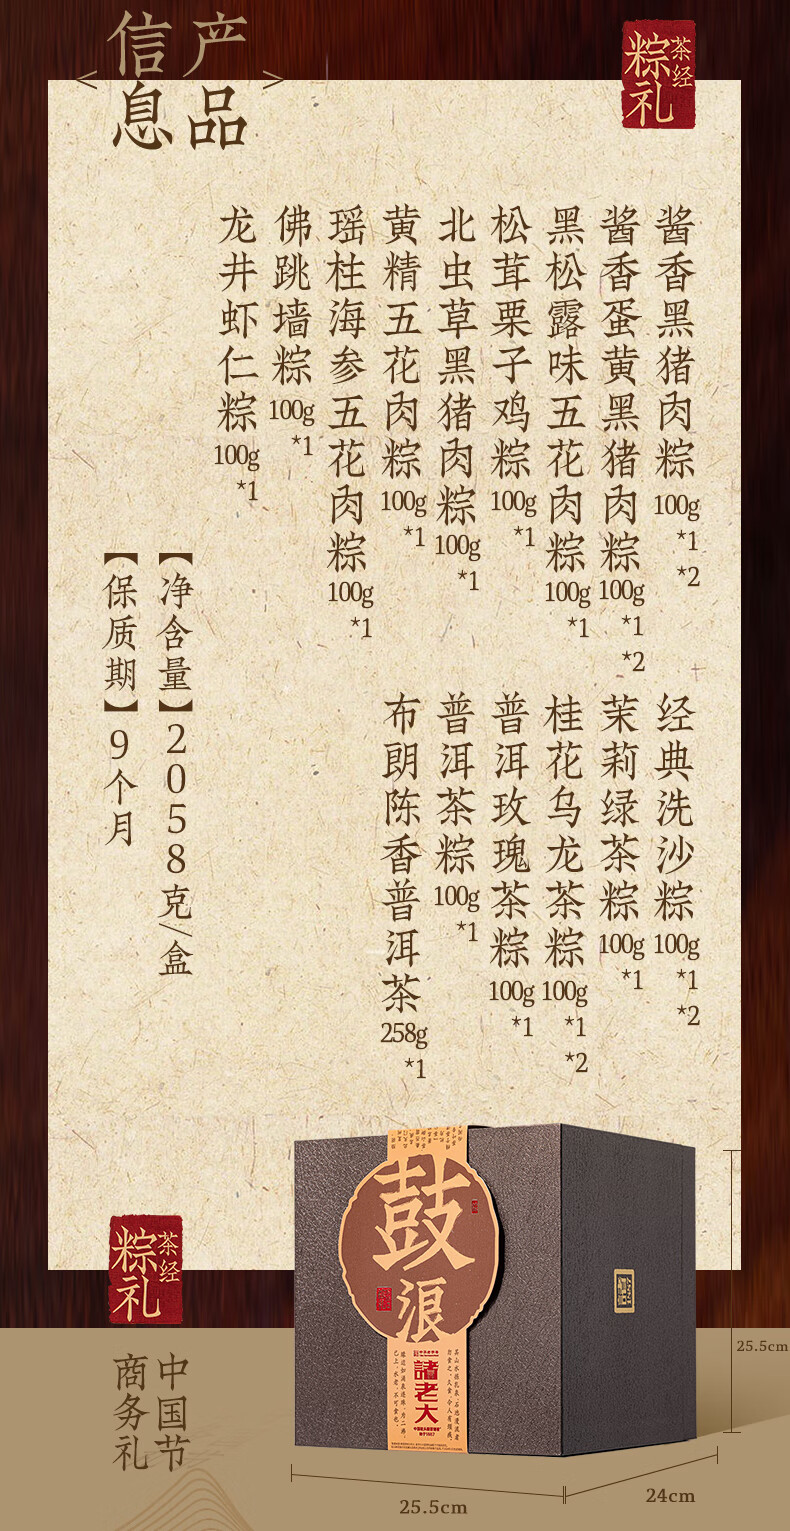 产品
信息
茶经
粽礼
酱香黑猪肉粽100g*1*2
酱香蛋黄黑猪肉粽100g*1*2
黑松露味五花肉粽100g*1
松茸栗子鸡粽100g*1
北虫草黑猪肉粽100g*1
黄精五花肉粽100g*1
瑶柱海参五花肉粽100g*1
佛跳墙粽100g*1
龙井虾仁粽100g*1
经典洗沙粽100g*1*2
茉莉绿茶粽100g*1
桂花乌龙茶粽100g*1*2
普洱玫瑰茶粽100g*1
普洱茶粽100g*1
布朗陈香普洱茶258g*1
【净含量】2058克/盒
【保质期】9个月
鼓浪
諸老大
茶经
粽礼
中国节
商务礼
25.5cm
24cm
25.5cm